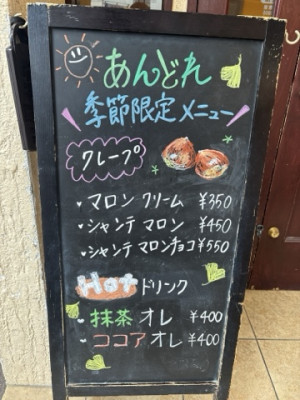 あんどれ
季節限定メニュー
クレープ
・マロンクリーム ¥350
・シャンテマロン ¥450
・シャンテマロンチョコ ¥550
Hotドリンク
・抹茶オレ ¥400
・ココアオレ ¥400